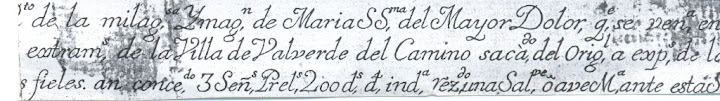 to de la milag.sa Ymag.n de Maria SS.ma del Mayor Dolor, q.e se ven.a en
extram.s de la Villa de Valverde del Camino saca.do del Orig.l a exp.s de lo
s fieles. an conce.do 3 Señ.s Prel.s 200 d.s d, ind.a rez.do una Sal.pe o ave M.a ante esta S